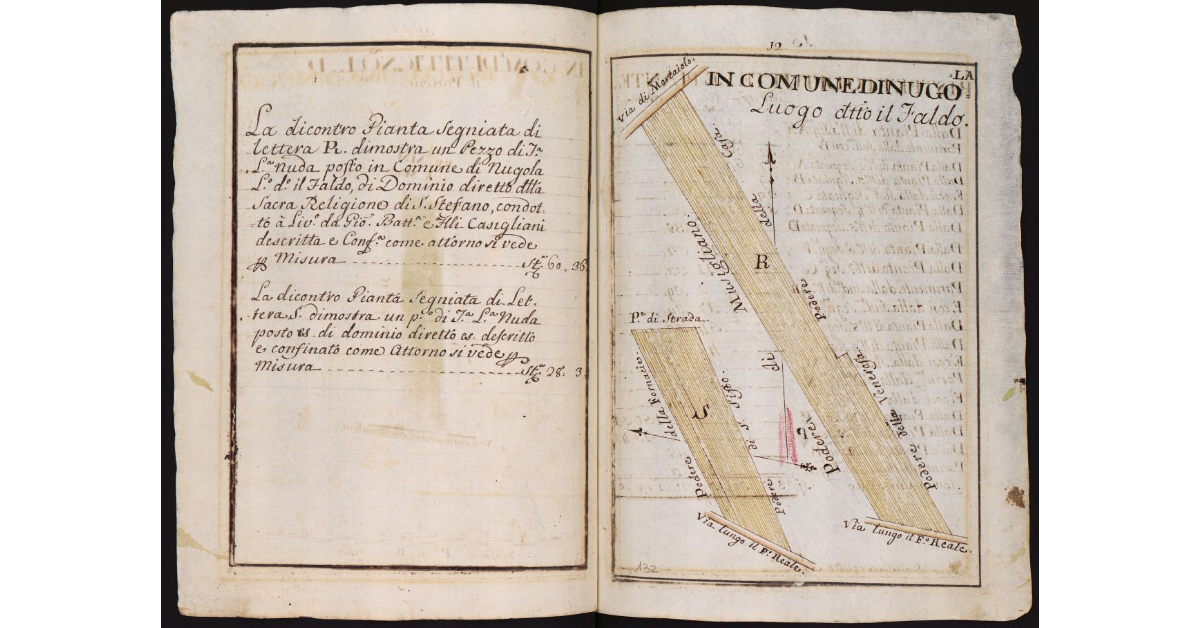 La dicontro Pianta segniata di
lettera R. dimostra un Pezzo di T.ª
L.ª nuda posto in Comune di Nugola
L.º d.º il Faldo, di Dominio diretto dtta
Sacra Religione di S. Stefano, condot
to à Liv.º da Gio. Batt.ª e Flli. Casigliani
descritta e Conf.ª come attorno si vede
p Misura St.ª 60 - 36
La dicontro Pianta segniata di Let-
tera S. dimostra un p.º di T.ª L.ª Nuda
posto es. di dominio diretto es. descritto
e confinato come Attorno si vede p
Misura St.ª 28. 3
12
LA
IN COMUNE DI NUGO
Luogo dtto il Faldo.
Via di Mortaiolo.
Podere della Casa.
R
Poderes di Musigliano.
Podere della Venerosa.
Via lungo il F.º Reale.
P.º di Strada.
S
Podere della Fornacie.
Podere di S. Sisto.
Via lungo il F.º Reale.
132